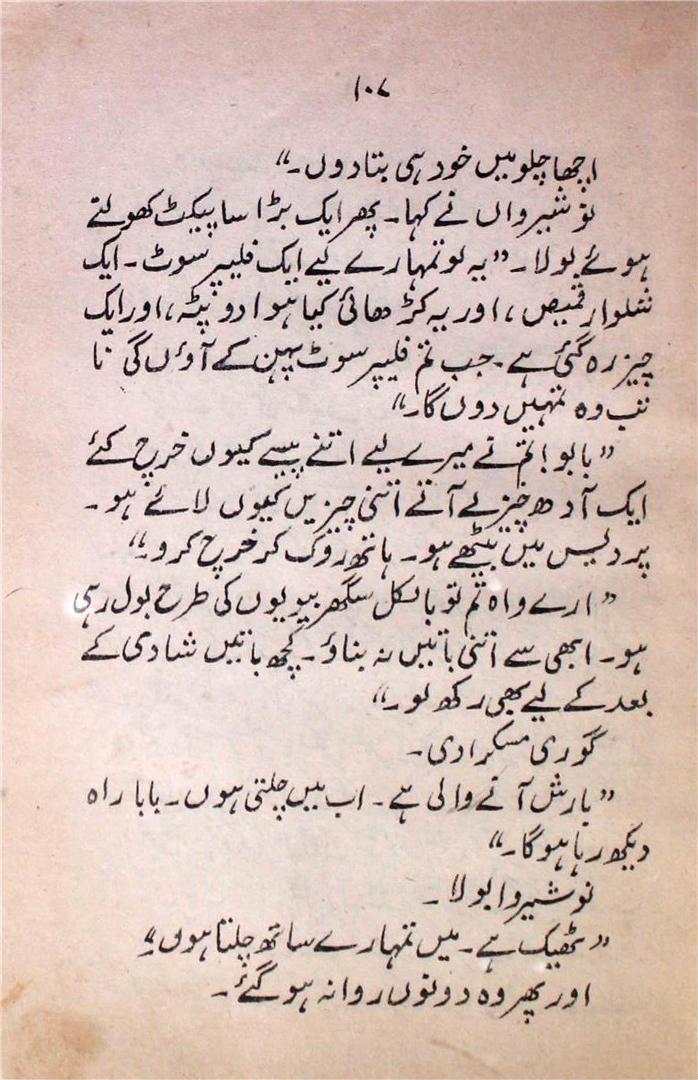 ۱۰۷
اچھا چلو میں خود ہی بتا دوں۔“
نوشیرواں نے کہا۔ پھر ایک بڑا سا پیکٹ کھولتے
ہوئے بولا۔ ”یہ لو تمہارے لیے ایک فلیپر سوٹ۔ ایک
شلوار قمیص، اور یہ کڑھائی کیا ہوا دوپٹہ، اور ایک
چیز رہ گئی ہے۔ جب تم فلیپر سوٹ پہن کے آؤں گی نا
تب وہ تمہیں دوں گا۔“
”بابو! تم نے میرے لیے اتنے پیسے کیوں خرچ کئے
ایک آدھ چیز لے آتے اتنی چیزیں کیوں لائے ہو۔
پردیس میں بیٹھے ہو۔ ہاتھ روک کر خرچ کرو۔“
”ارے واہ تم تو بالکل سگھڑ بیویوں کی طرح بول رہی
ہو۔ ابھی سے اتنی باتیں نہ بناؤ۔ کچھ باتیں شادی کے
بعد کے لیے بھی رکھ لو۔“
گوری مسکرا دی۔
”بارش آنے والی ہے۔ اب میں چلتی ہوں۔ بابا راہ
دیکھ رہا ہوگا۔“
نوشیروا بولا۔
”ٹھیک ہے۔ میں تمہارے ساتھ چلتا ہوں۔“
اور پھر وہ دونوں روانہ ہو گئے۔